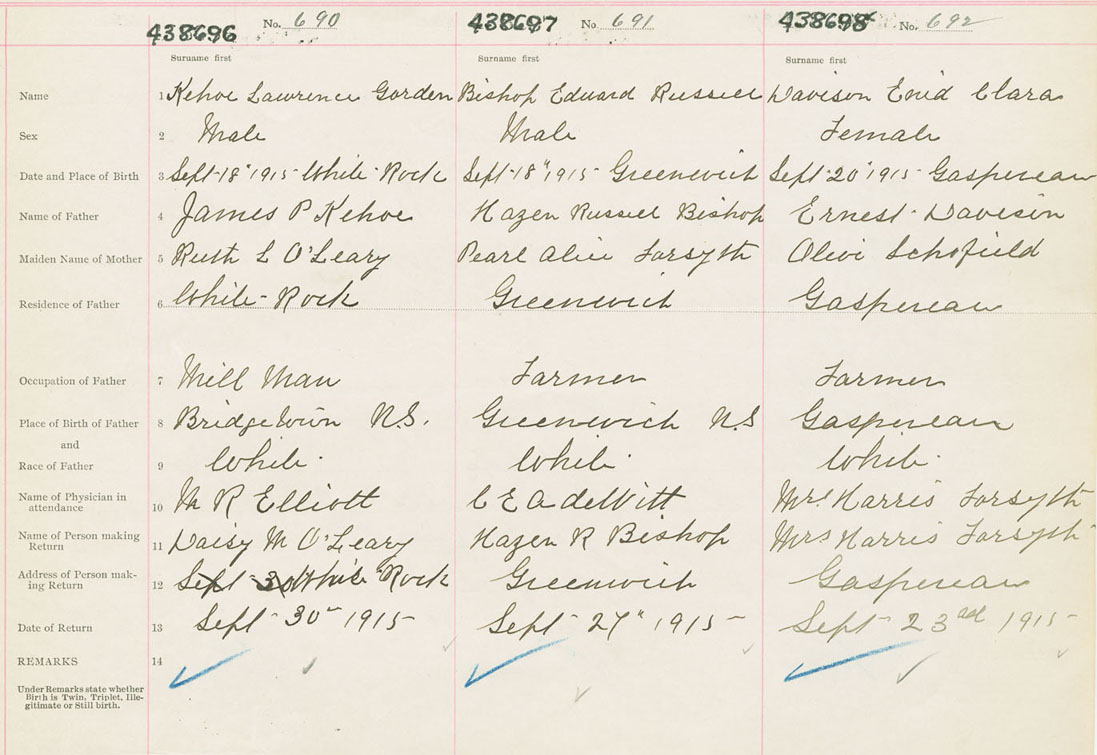 438696 No. 690 438697 No. 691 438698 No. 692
Surname first Surname first Surname first
Name 1 Kehoe Lawrence Gorden Bishop Eduard Russell Davison Enid Clara
Sex 2 Male Male Female
Date and Place of Birth 3 Sept 18" 1915 White Rock Sept 18" 1915 Greenwich Sept 20" 1915 Gaspereau
Name of Father 4 James P Kehoe Hazen Russell Bishop Ernest Davison
Maiden Name of Mother 5 Ruth L O'Leary Pearl Alice Forsyth Olivi Schofield
Residence of Father 6 White Rock Greenwich Gaspereau
Occupation of Father 7 Mill Man Farmer Farmer
Place of Birth of Father 8 Bridgetown N.S. Greenwich NS Gaspereau
and
Race of Father 9 White White White
Name of Physician in
attendance 10 M R Elliott C E A deWitt Mrs Harris Forsyth
Name of Person making
Return 11 Daisy M O'Leary Hazen R Bishop Mrs Harris Forsyth
Address of Person mak-
ing Return 12 Sept 30 White Rock Greenwich Gaspereau
Date of Return 13 Sept 30" 1915 Sept 27" 1915 Sept 23rd 1915
REMARKS 14
Under Remarks state whether
Birth is Twin, Triplet, Ille-
gitimate or Still birth.